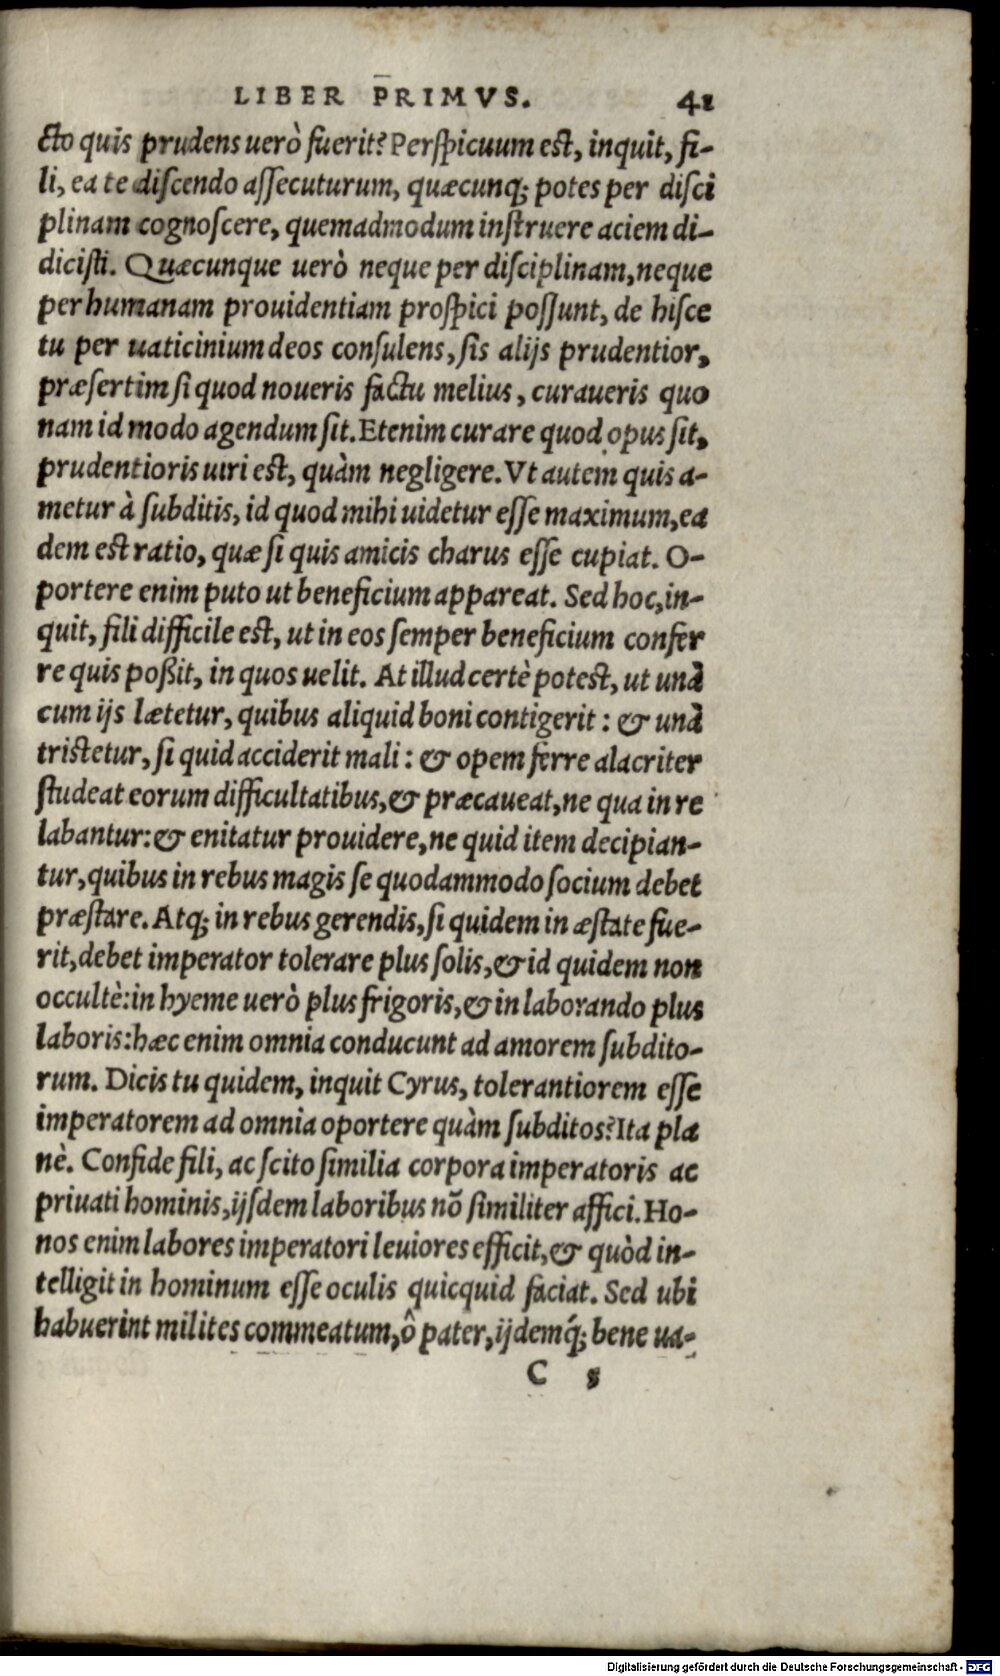 LIBER PRIMVS. 41
cto quis prudens uerò fuerit? Perspicuum est, inquit, fi-
li, ea te discendo assecuturum, quæcunq; potes per disci
plinam cognoscere, quemadmodum instruere aciem di-
dicisti. Quæcunque uerò neque per disciplinam, neque
per humanam prouidentiam prospici possunt, de hisce
tu per uaticinium deos consulens, sis alijs prudentior,
præsertim si quod noueris factu melius, curaueris quo
nam id modo agendum sit. Etenim curare quod opus sit,
prudentioris uiri est, quàm negligere. Vt autem quis a-
metur à subditis, id quod mihi uidetur esse maximum, ea
dem est ratio, quæ si quis amicis charus esse cupiat. O-
portere enim puto ut beneficium appareat. Sed hoc, in-
quit, fili difficile est, ut in eos semper beneficium confer
re quis poßit, in quos uelit. At illud certè potest, ut unà
cum ijs lætetur, quibus aliquid boni contigerit: & unà
tristetur, si quid acciderit mali: & opem ferre alacriter
studeat eorum difficultatibus, & præcaueat, ne qua in re
labantur: & enitatur prouidere, ne quid item decipian-
tur, quibus in rebus magis se quodammodo socium debet
præstare. Atq; in rebus gerendis, si quidem in æstate fue-
rit, debet imperator tolerare plus solis, & id quidem non
occultè: in hyeme uerò plus frigoris, & in laborando plus
laboris: hæc enim omnia conducunt ad amorem subdito-
rum. Dicis tu quidem, inquit Cyrus, tolerantiorem esse
imperatorem ad omnia oportere quàm subditos? Ita pla
nè. Confide fili, ac scito similia corpora imperatoris ac
priuati hominis, ijsdem laboribus nõ similiter affici. Ho-
nos enim labores imperatori leuiores efficit, & quòd in-
telligit in hominum esse oculis quicquid faciat. Sed ubi
habuerint milites commeatum, ô pater, ijdemq́; bene ua-
C 5
Digitalisierung gefördert durch die Deutsche Forschungsgemeinschaft - DFG